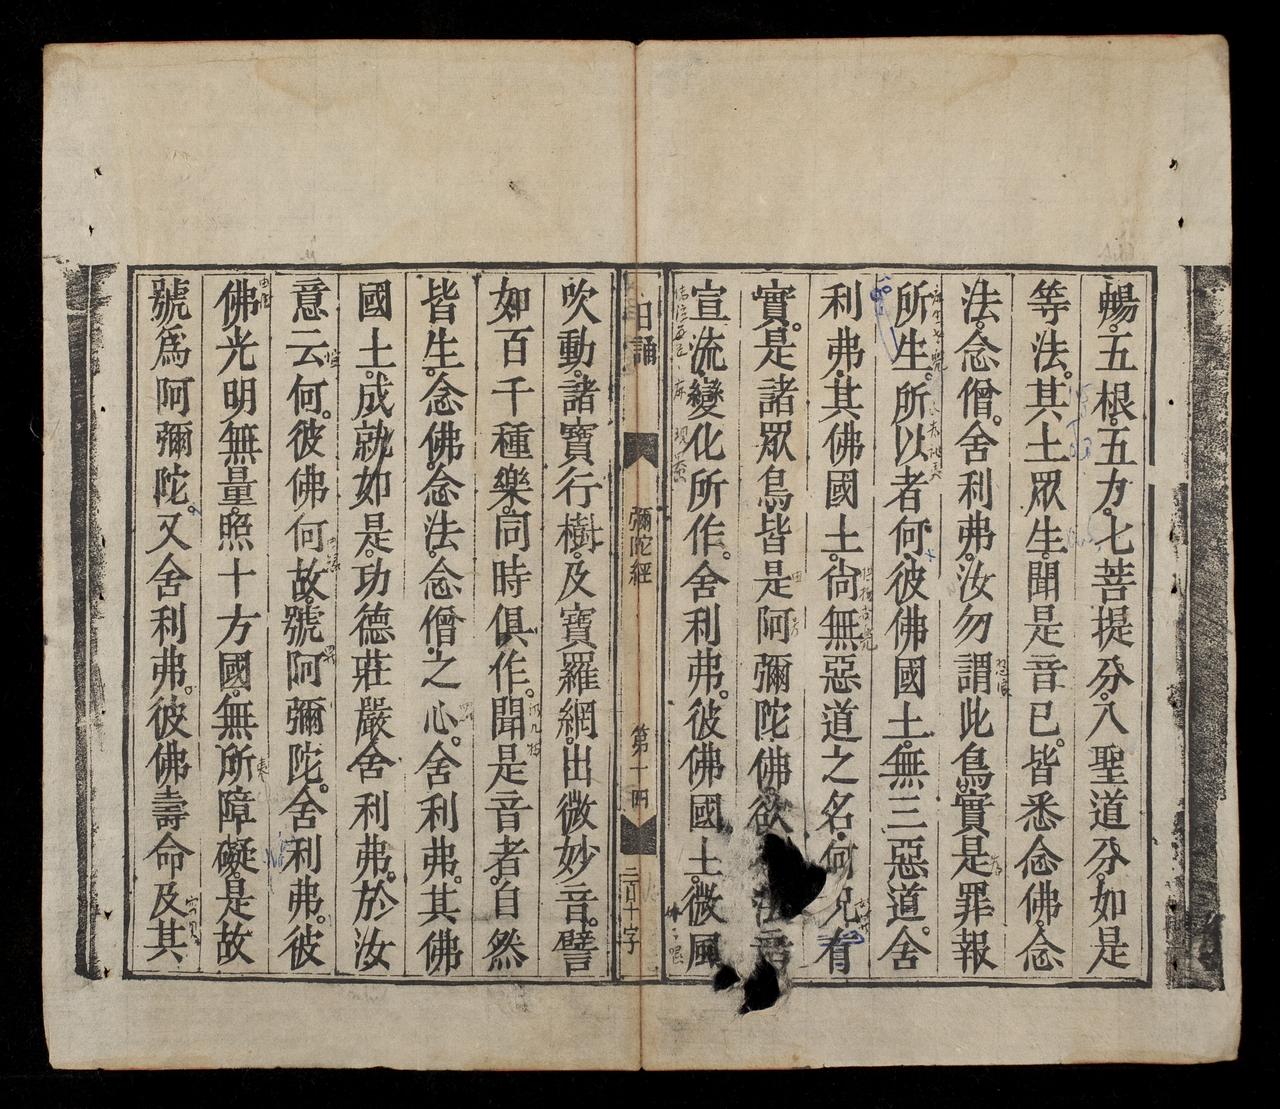 暢。五根。五力。七菩提分。八聖道分。如是
等法。其土眾生。聞是音已。皆悉念佛。念
法。念僧。舍利弗。汝勿謂此鳥。實是罪報
所生。所以者何。彼佛國土。無三惡道。舍
利弗。其佛國土。尚無惡道之名。何況有
實。是諸眾鳥。皆是阿彌陀佛。欲
宣流。變化所作。舍利弗。彼佛國土。微風
日誦
彌陀經
第十四
二百十字
吹動。諸寶行樹。及寶羅網。出微妙音。譬
如百千種樂。同時俱作。聞是音者。自然
皆生。念佛。念法。念僧之心。舍利弗。其佛
國土。成就如是。功德莊嚴舍利弗。於汝
意云何。彼佛何故。號阿彌陀。舍利弗。彼
佛光明無量。照十方國。無所障礙。是故
號爲阿彌陀。又舍利弗。彼佛壽命。及其